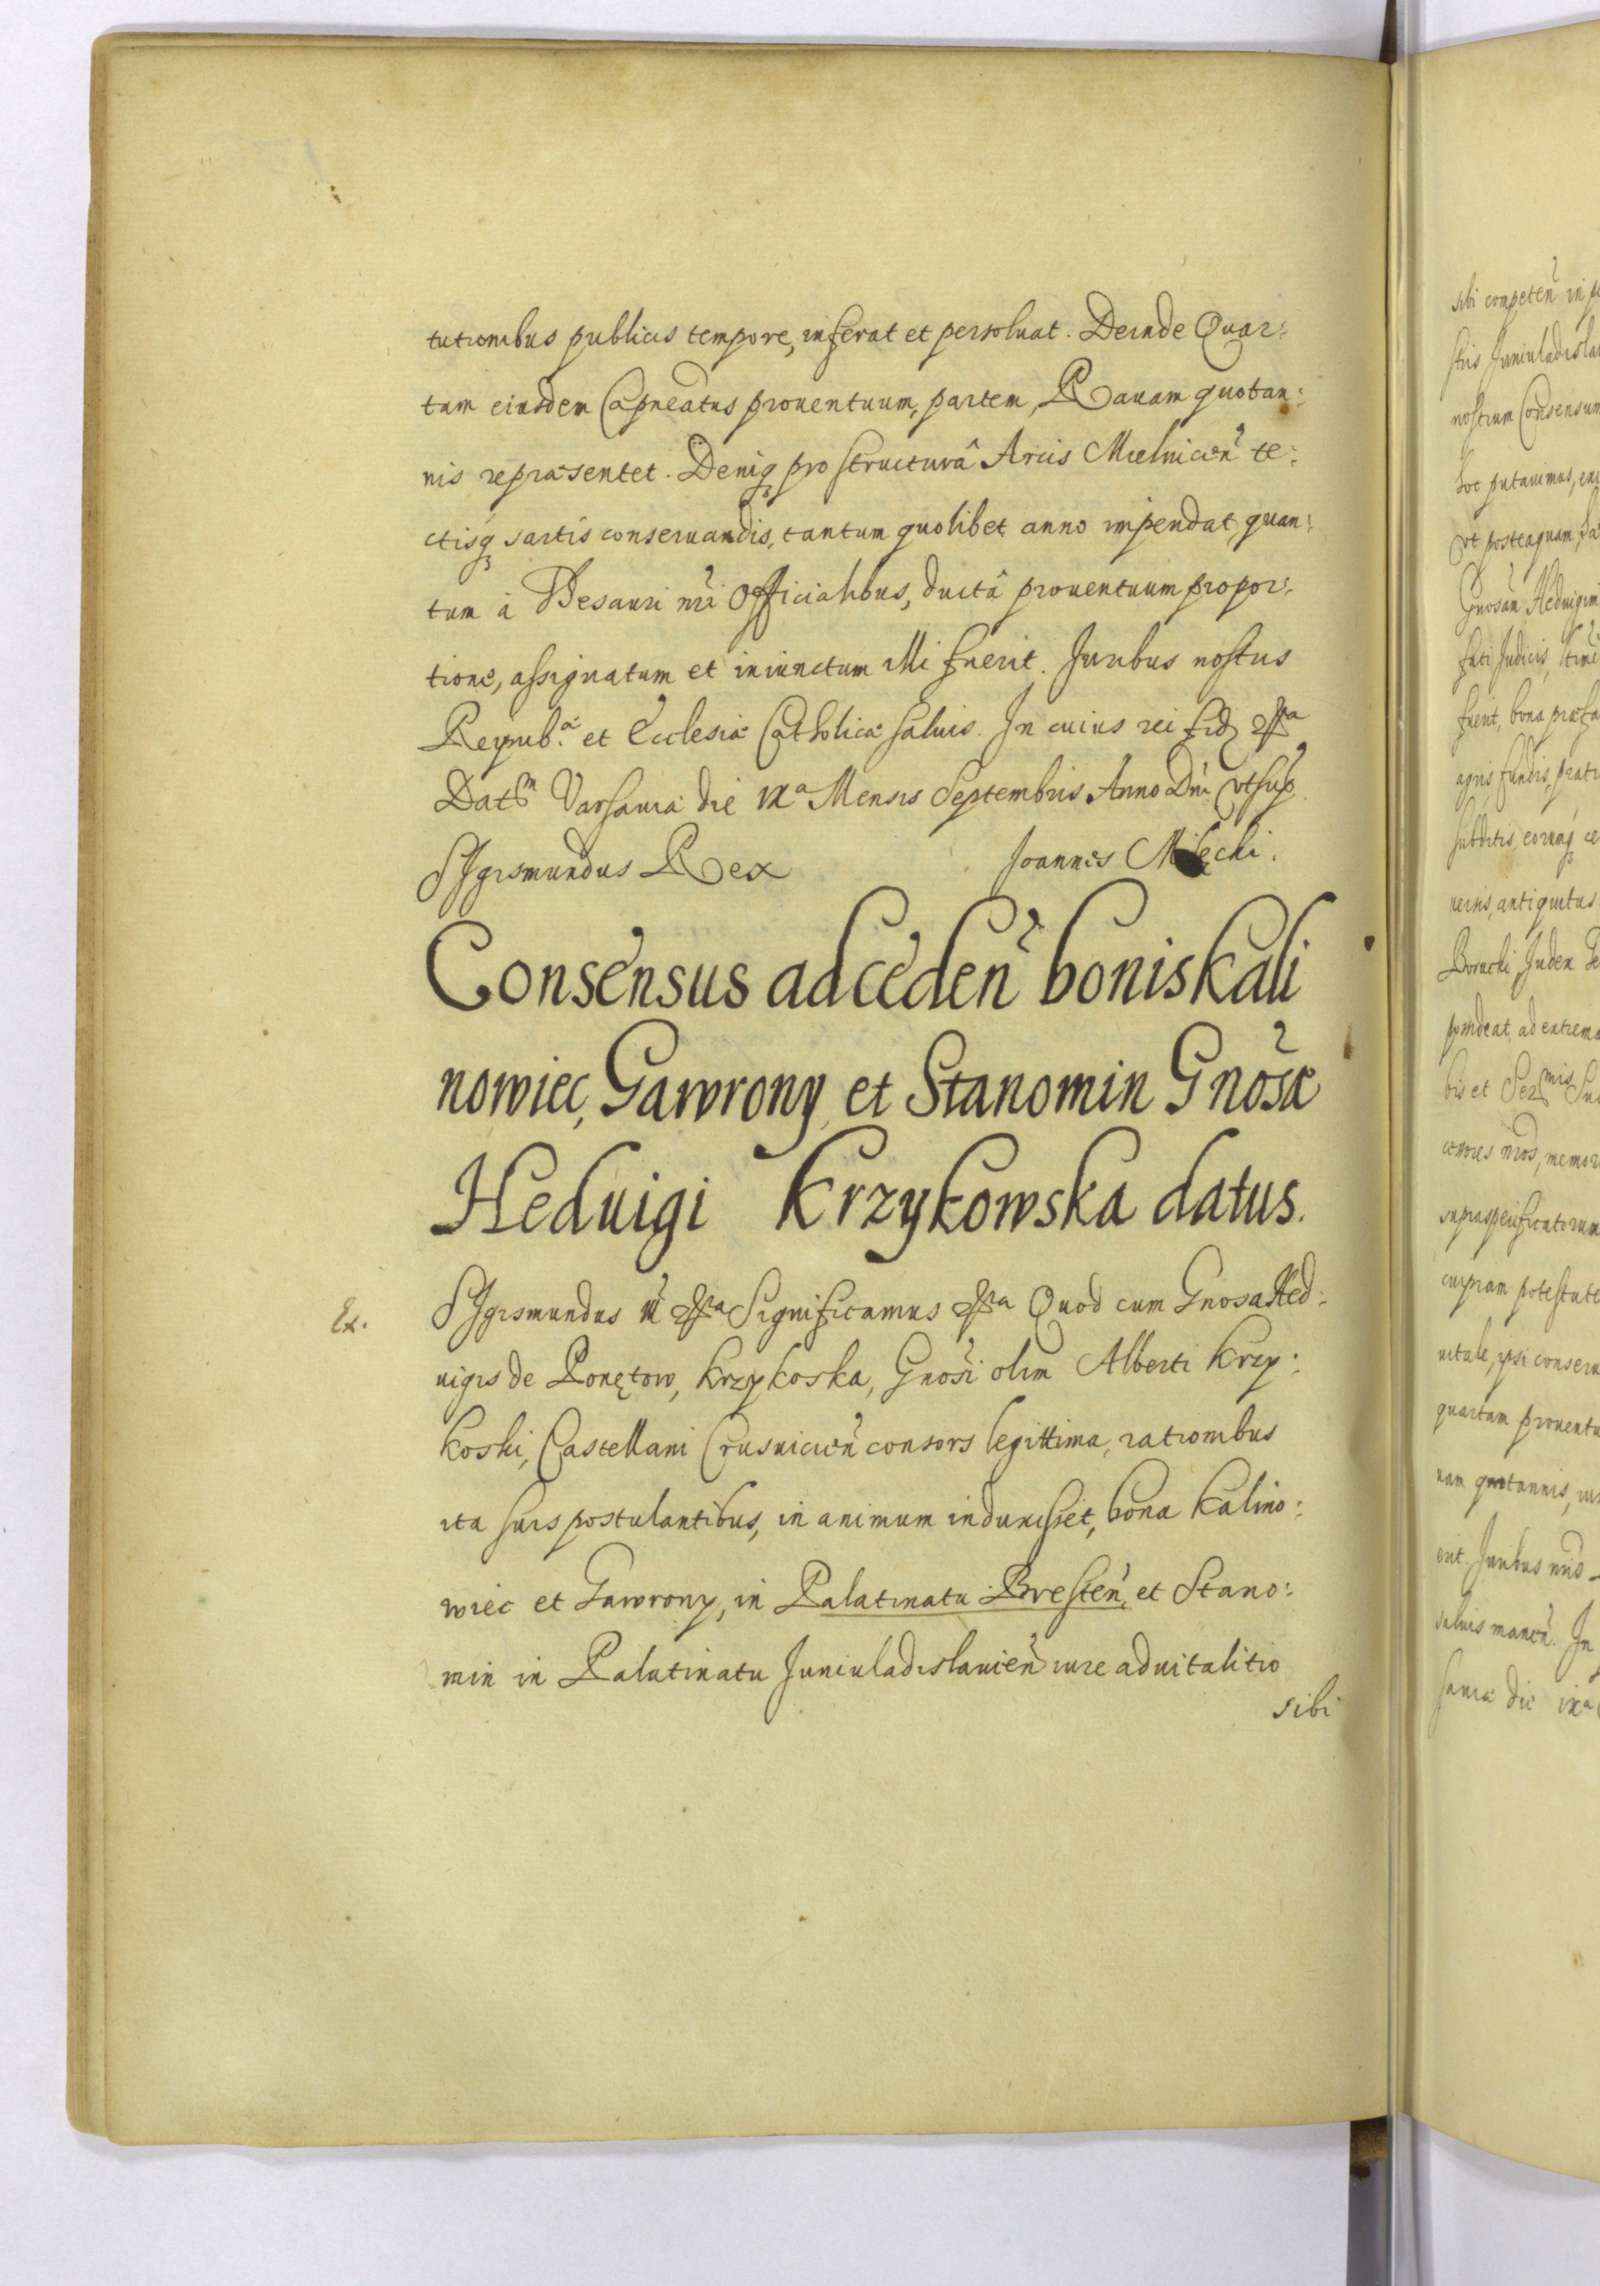 tutionibus publicis tempore, inferat et persoluat. Deinde Quar:
tam eiusdem Capneatus prouentuum, partem, Rauam quotan:
nis repræsentet. Deniq pro structurâ Arcis Mielnicen̄ te:
ctisq sartis conseruandis, tantum quolibet anno impendat, quan:
tum à Thesauri nr̄i Officialibus, ductâ prouentuum propor:
tione, assignatum et iniunctum illi fuerit. Juribus nostris
Reipub.æ et Ecclesiæ Catholicæ saluis. In cuius rei fid
Datm Varsauiæ die IXa Mensis Septembris Anno Dni vt sup
SIgismundus Rex Joannes
Consensus ad ceden̄ bonis Kali
nowiec, Gawrony, et Stanomin Gnosæ
Heduigi Krzykowska datus.
Ex. SIgismundus Significamus Quod cum Gnosa Hed:
uigis de Ponętow, Krzykoska, Gnosi olim Alberti Krzy:
koski, Castellani Crusuicien̄ consors legittima, rationibus
ita suis postulantibus, in animum induxisset, bona Kalino:
wiec et Gawrony, in Palatinatu Bresten̄, et Stano:
min in Palatinatu Juniuladislauien̄ iure aduitalitio
sibi
sibi competen̄ in
stris Juniuladisla
nostrum Consensum
hoc putauimus,
vt posteaquam,
Gnosam Heduigim
fati Judicis,
fuerit, bona præfa
agris, fundis, prati
subditis, eorumq
antiquitus
Borucki Judex
ad extrema
bis et Sermis
nros, memor
supraspecificatorum
potestate
uitale, ipsi conseru
quartam prouentu
nam quotannis,
erit. Juribus nris
saluis manen̄. In
sauiæ die ixa